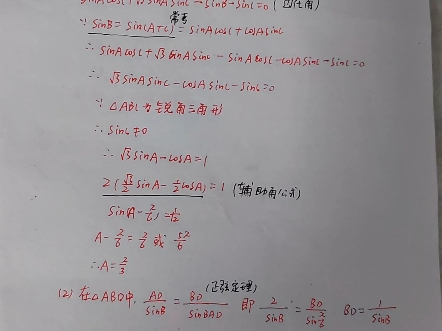 sinAcosC+√3sinAsinC-sinB-sinC=0 (四化角)
常考
∵ sinB=sin(A+C)=sinAcosC+cosAsinC
∴ sinAcosC+√3sinAsinC-sinAcosC-cosAsinC-sinC=0
∴ √3sinAsinC-cosAsinC-sinC=0
∵ △ABC为锐角三角形
∴ sinC≠0
∴ √3sinA-cosA=1
2(√3/2 sinA-1/2 cosA)=1 (辅助角公式)
sin(A-π/6)=1/2
A-π/6=π/6 或 5π/6
∴A=π/3
(2) 在△ABD中, AD/sinB=BD/sinBAD (正弦定理) 即 2/sinB=BD/sinπ/6 BD=1/sinB